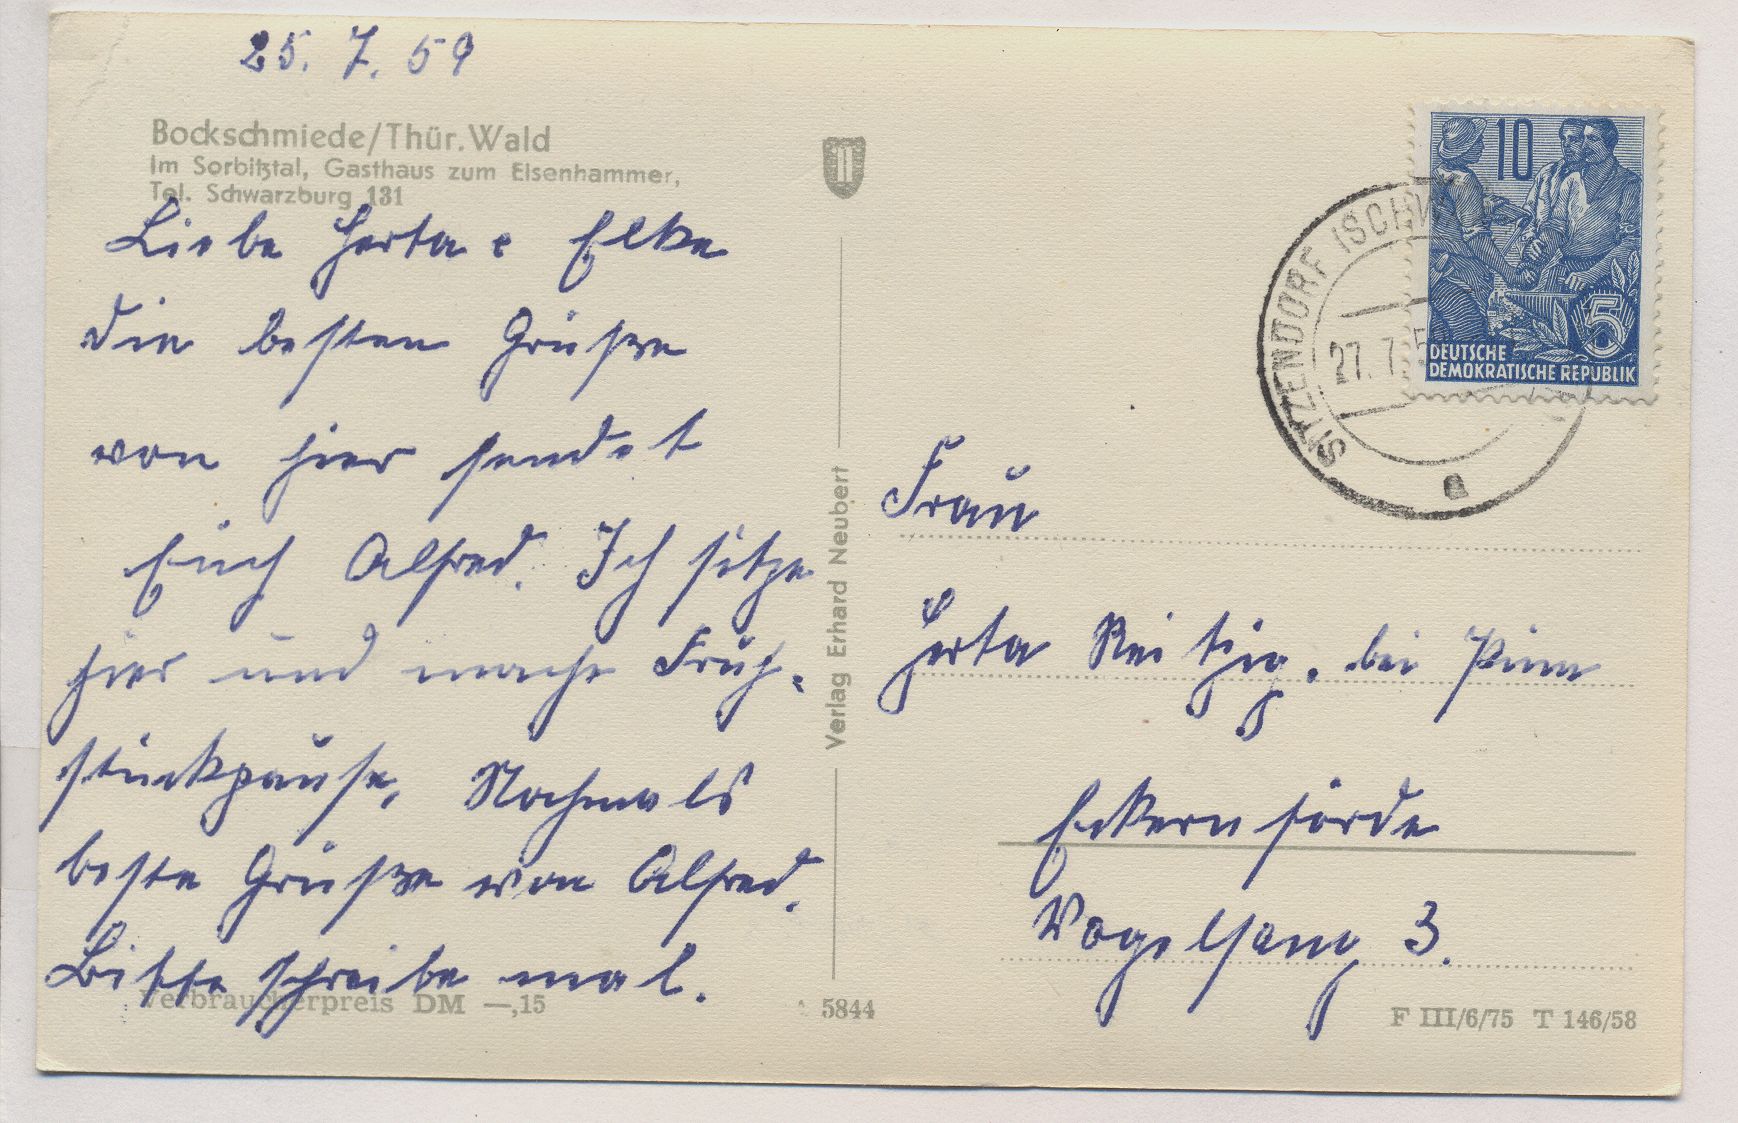 25. 7. 59
Bockschmiede/Thür. Wald
Im Sorbitztal, Gasthaus zum Eisenhammer,
Tel. Schwarzburg 131
Liebe Herta e Elke
die besten Grüße
von hier sendet
Euch Alfred. Ich sitze
hier und mache Früh-
stückpause, Nochmals
beste Grüße von Alfred.
Bitte schreibe mal.
Verbraucherpreis DM —,15
5844
Verlag Erhard Neubert
10
5
DEUTSCHE
DEMOKRATISCHE REPUBLIK
SITZENDORF (SCHW
27. 7. 5
a
Frau
Herta Reitzig. bei
Eckernförde
Vogelsang 3.
F III/6/75 T 146/58